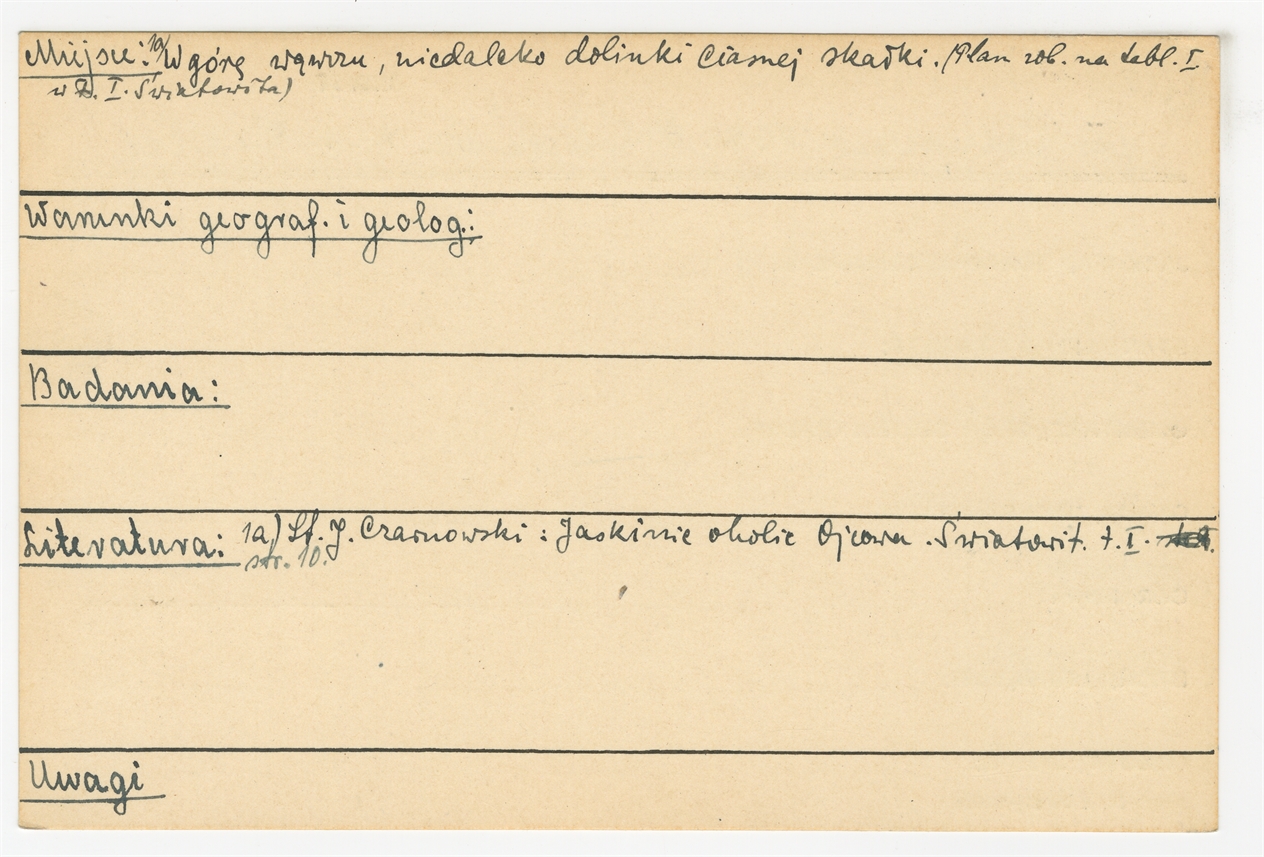 Miejsce: 1a) W górę wąwozu, niedaleko dolinki Ciasnej skałki. (Plan zob. na tabl. I
w t. I. Światowita)
Warunki geograf. i geolog.:
Badania:
Literatura: 1a) St. J. Czarnowski: Jaskinie okolic Ojcowa. Światowit. t. I.
str. 10.
Uwagi